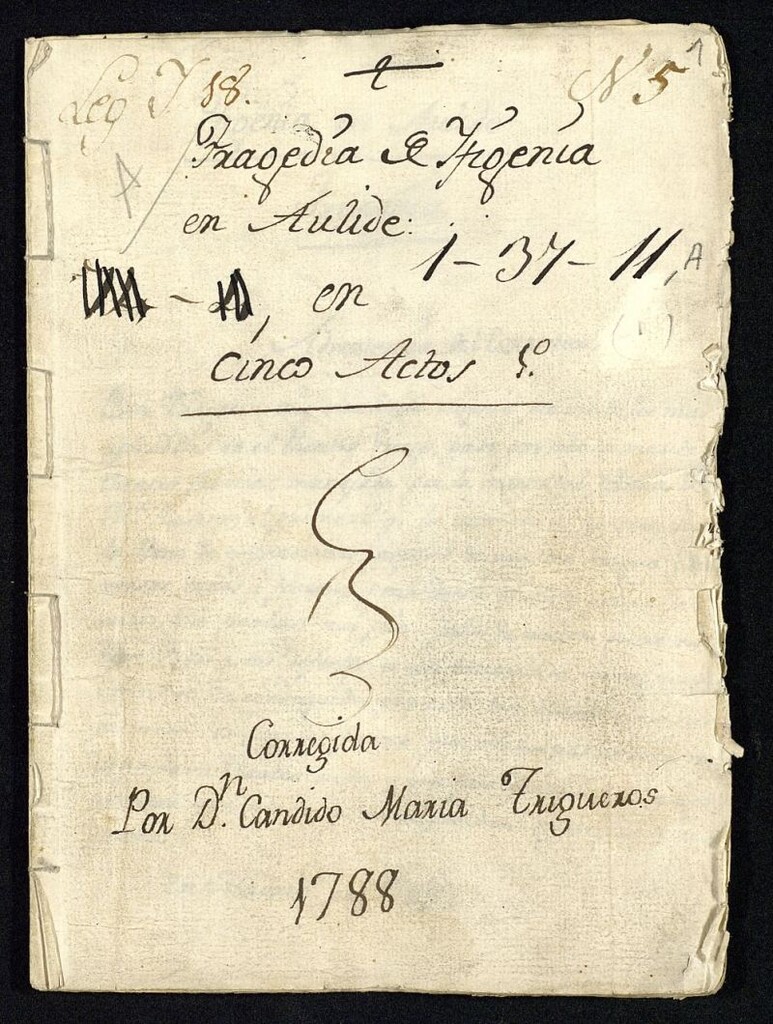 Leg Y 18.
Nº 5
1
Tragedia de Ifigenia
en Aulide:
1-37-11, A
en
Cinco Actos
Corregida
Por Dn. Candido Maria Trigueros
1788